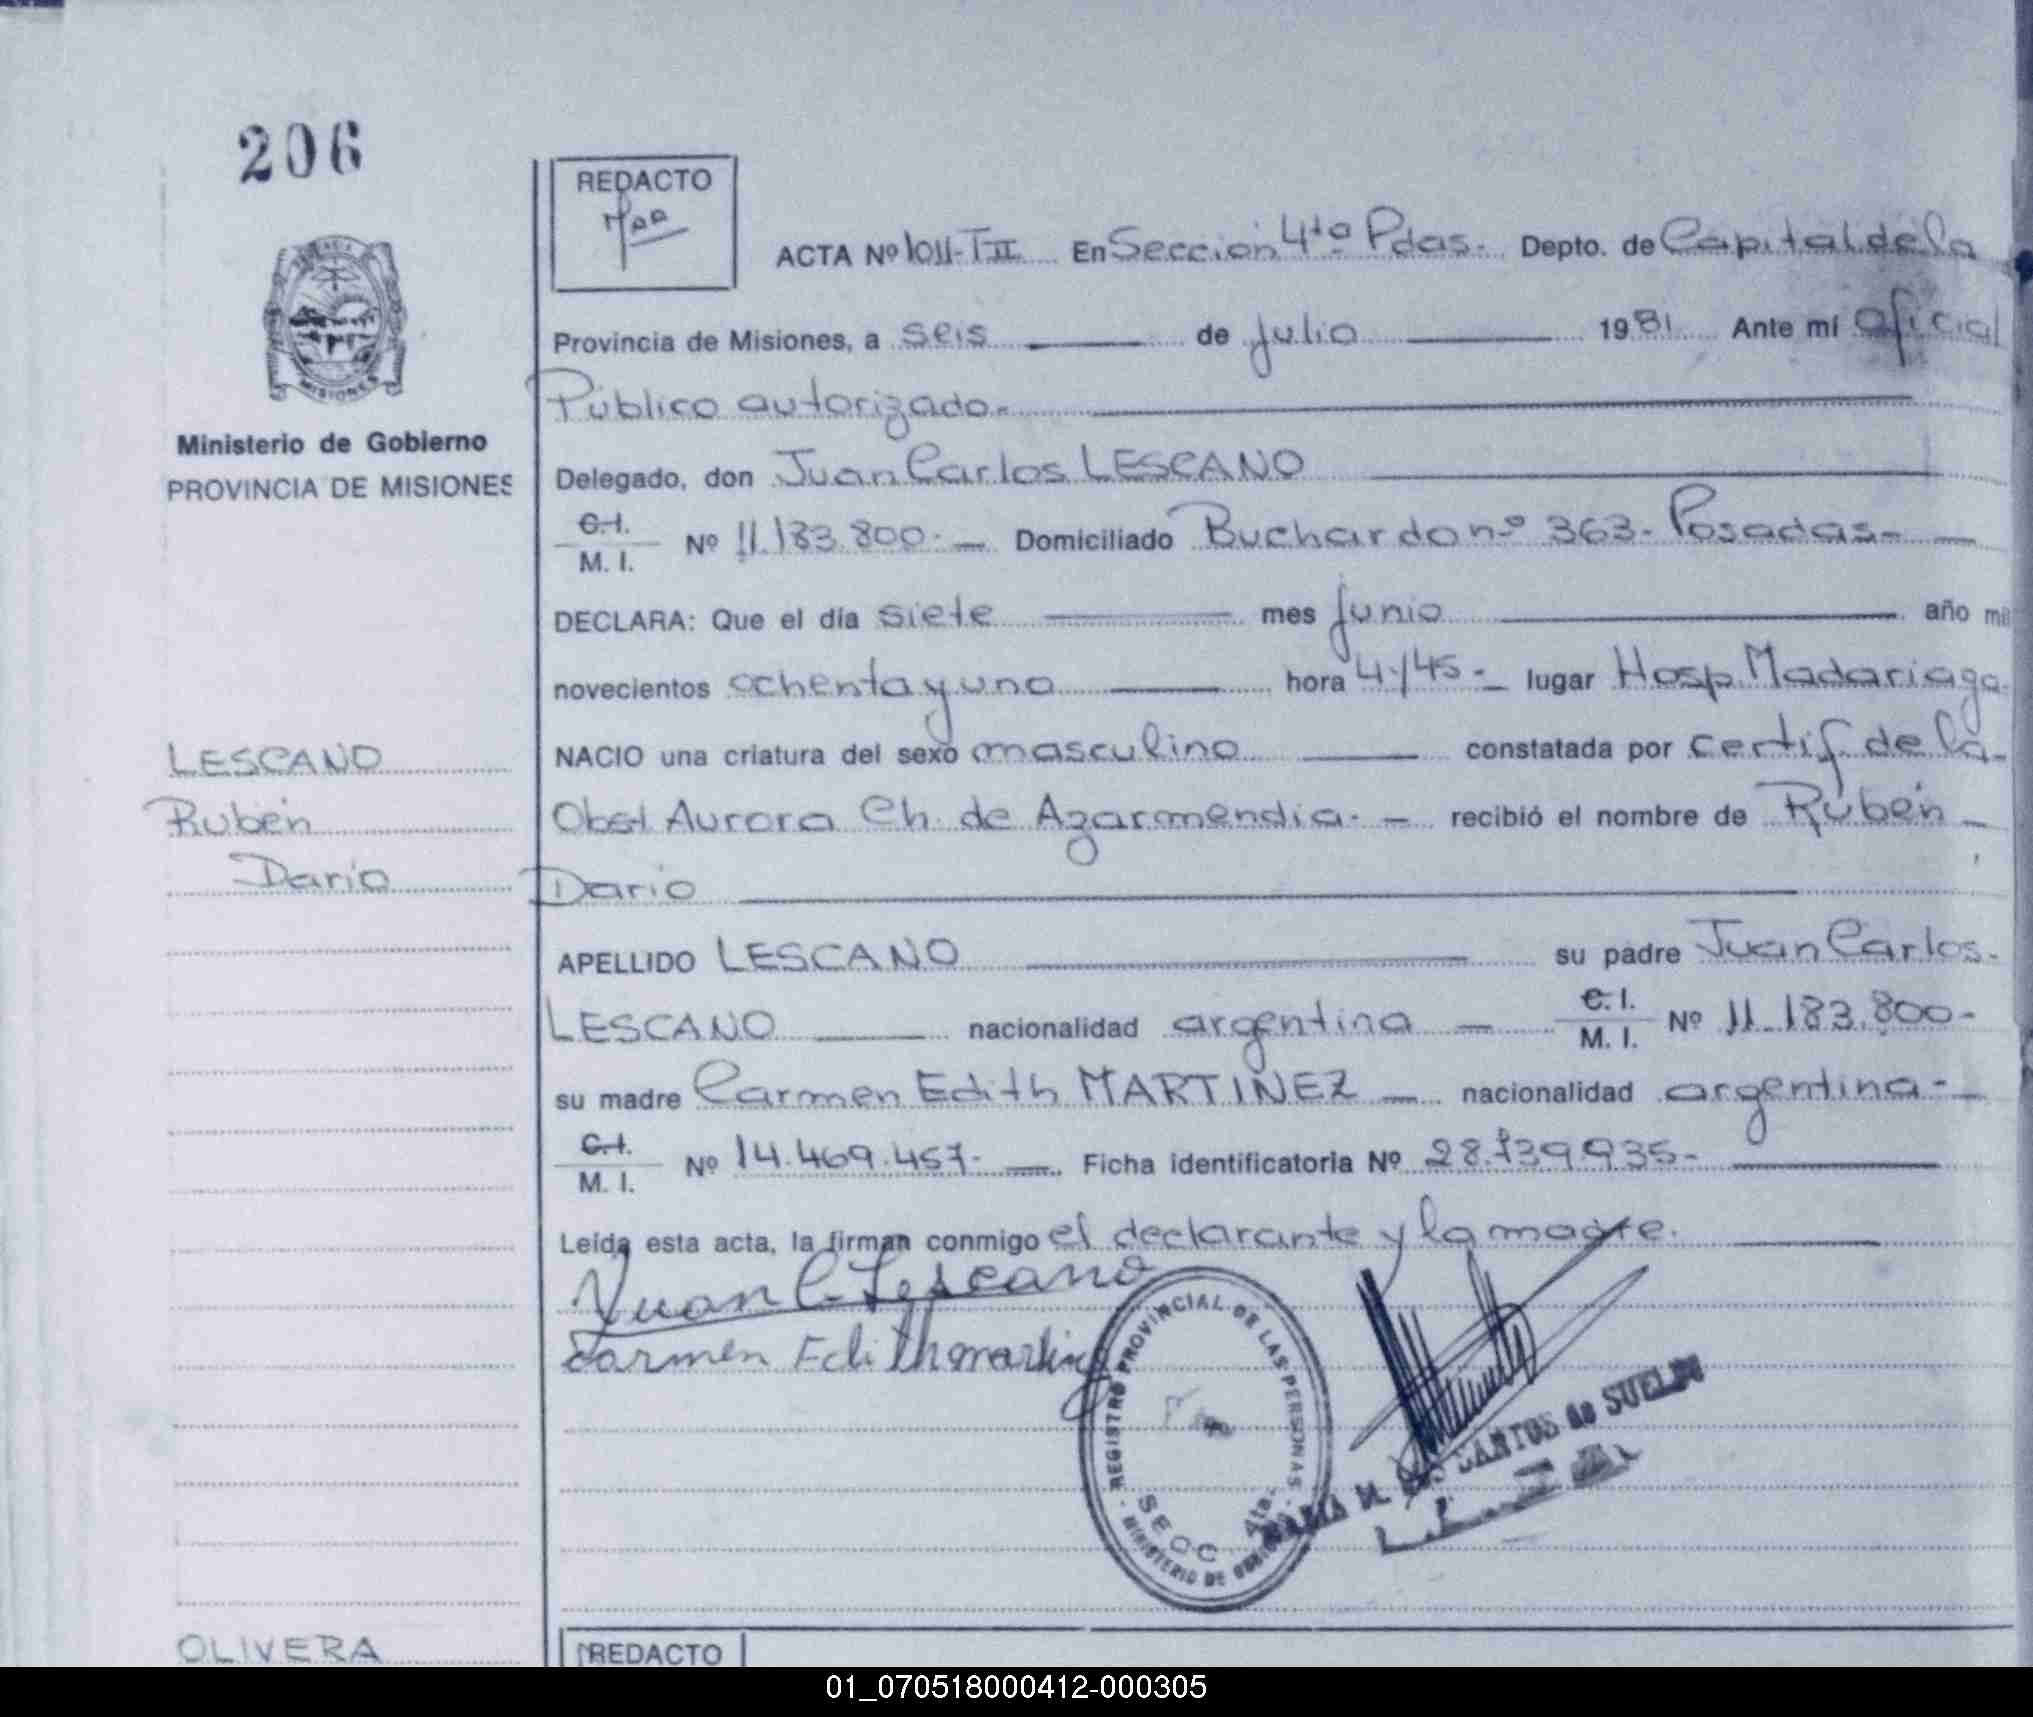 206
REDACTO
ACTA Nº 1011-TII En Sección 4ta Pdas. Depto. de Capital de la
Provincia de Misiones, a seis de julio 1981 Ante mí oficial
Público autorizado.
Ministerio de Gobierno
PROVINCIA DE MISIONES
Delegado, don Juan Carlos LESCANO
C.I.
M. I. Nº 11.183.800.- Domiciliado Buchardo nº 363- Posadas-
DECLARA: Que el día siete mes junio año mil
novecientos ochenta y uno hora 4/45- lugar Hosp Madariaga
LESCANO
NACIO una criatura del sexo masculino constatada por certif. de la-
Rubén
Obst Aurora Ch. de Azarmendia.- recibió el nombre de Rubén
Darío
Darío
APELLIDO LESCANO su padre Juan Carlos.
LESCANO nacionalidad argentina C.I.
M. I. Nº 11.183.800-
su madre Carmen Edith MARTINEZ nacionalidad argentina-
C.I.
M. I. Nº 14.469.457- Ficha identificatoria Nº 28.739935-
Leída esta acta, la firman conmigo el declarante y la madre.
Juan C. Lescano
Carmen Edith martinez
REGISTRO PROVINCIAL DE LAS PERSONAS
SECC. 4ta.
MINISTERIO DE GOBIERNO
MARIA M. SANTOS de SUELDI
OLIVERA
REDACTO
01_070518000412-000305